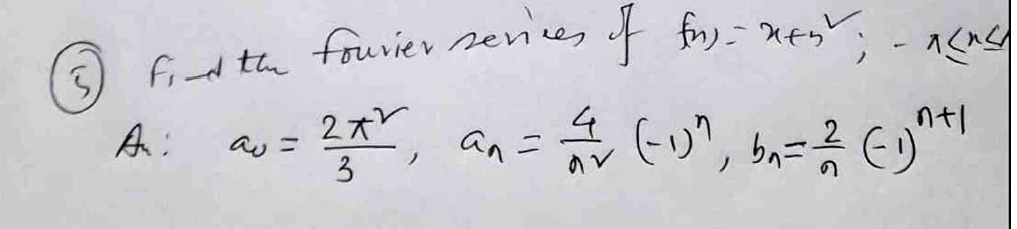 (5) Find the fourier series of f(x) = x+x²; -π≤x≤
An: a₀ = 2π²/3, aₙ = 4/n² (-1)ⁿ, bₙ = 2/n (-1)ⁿ⁺¹